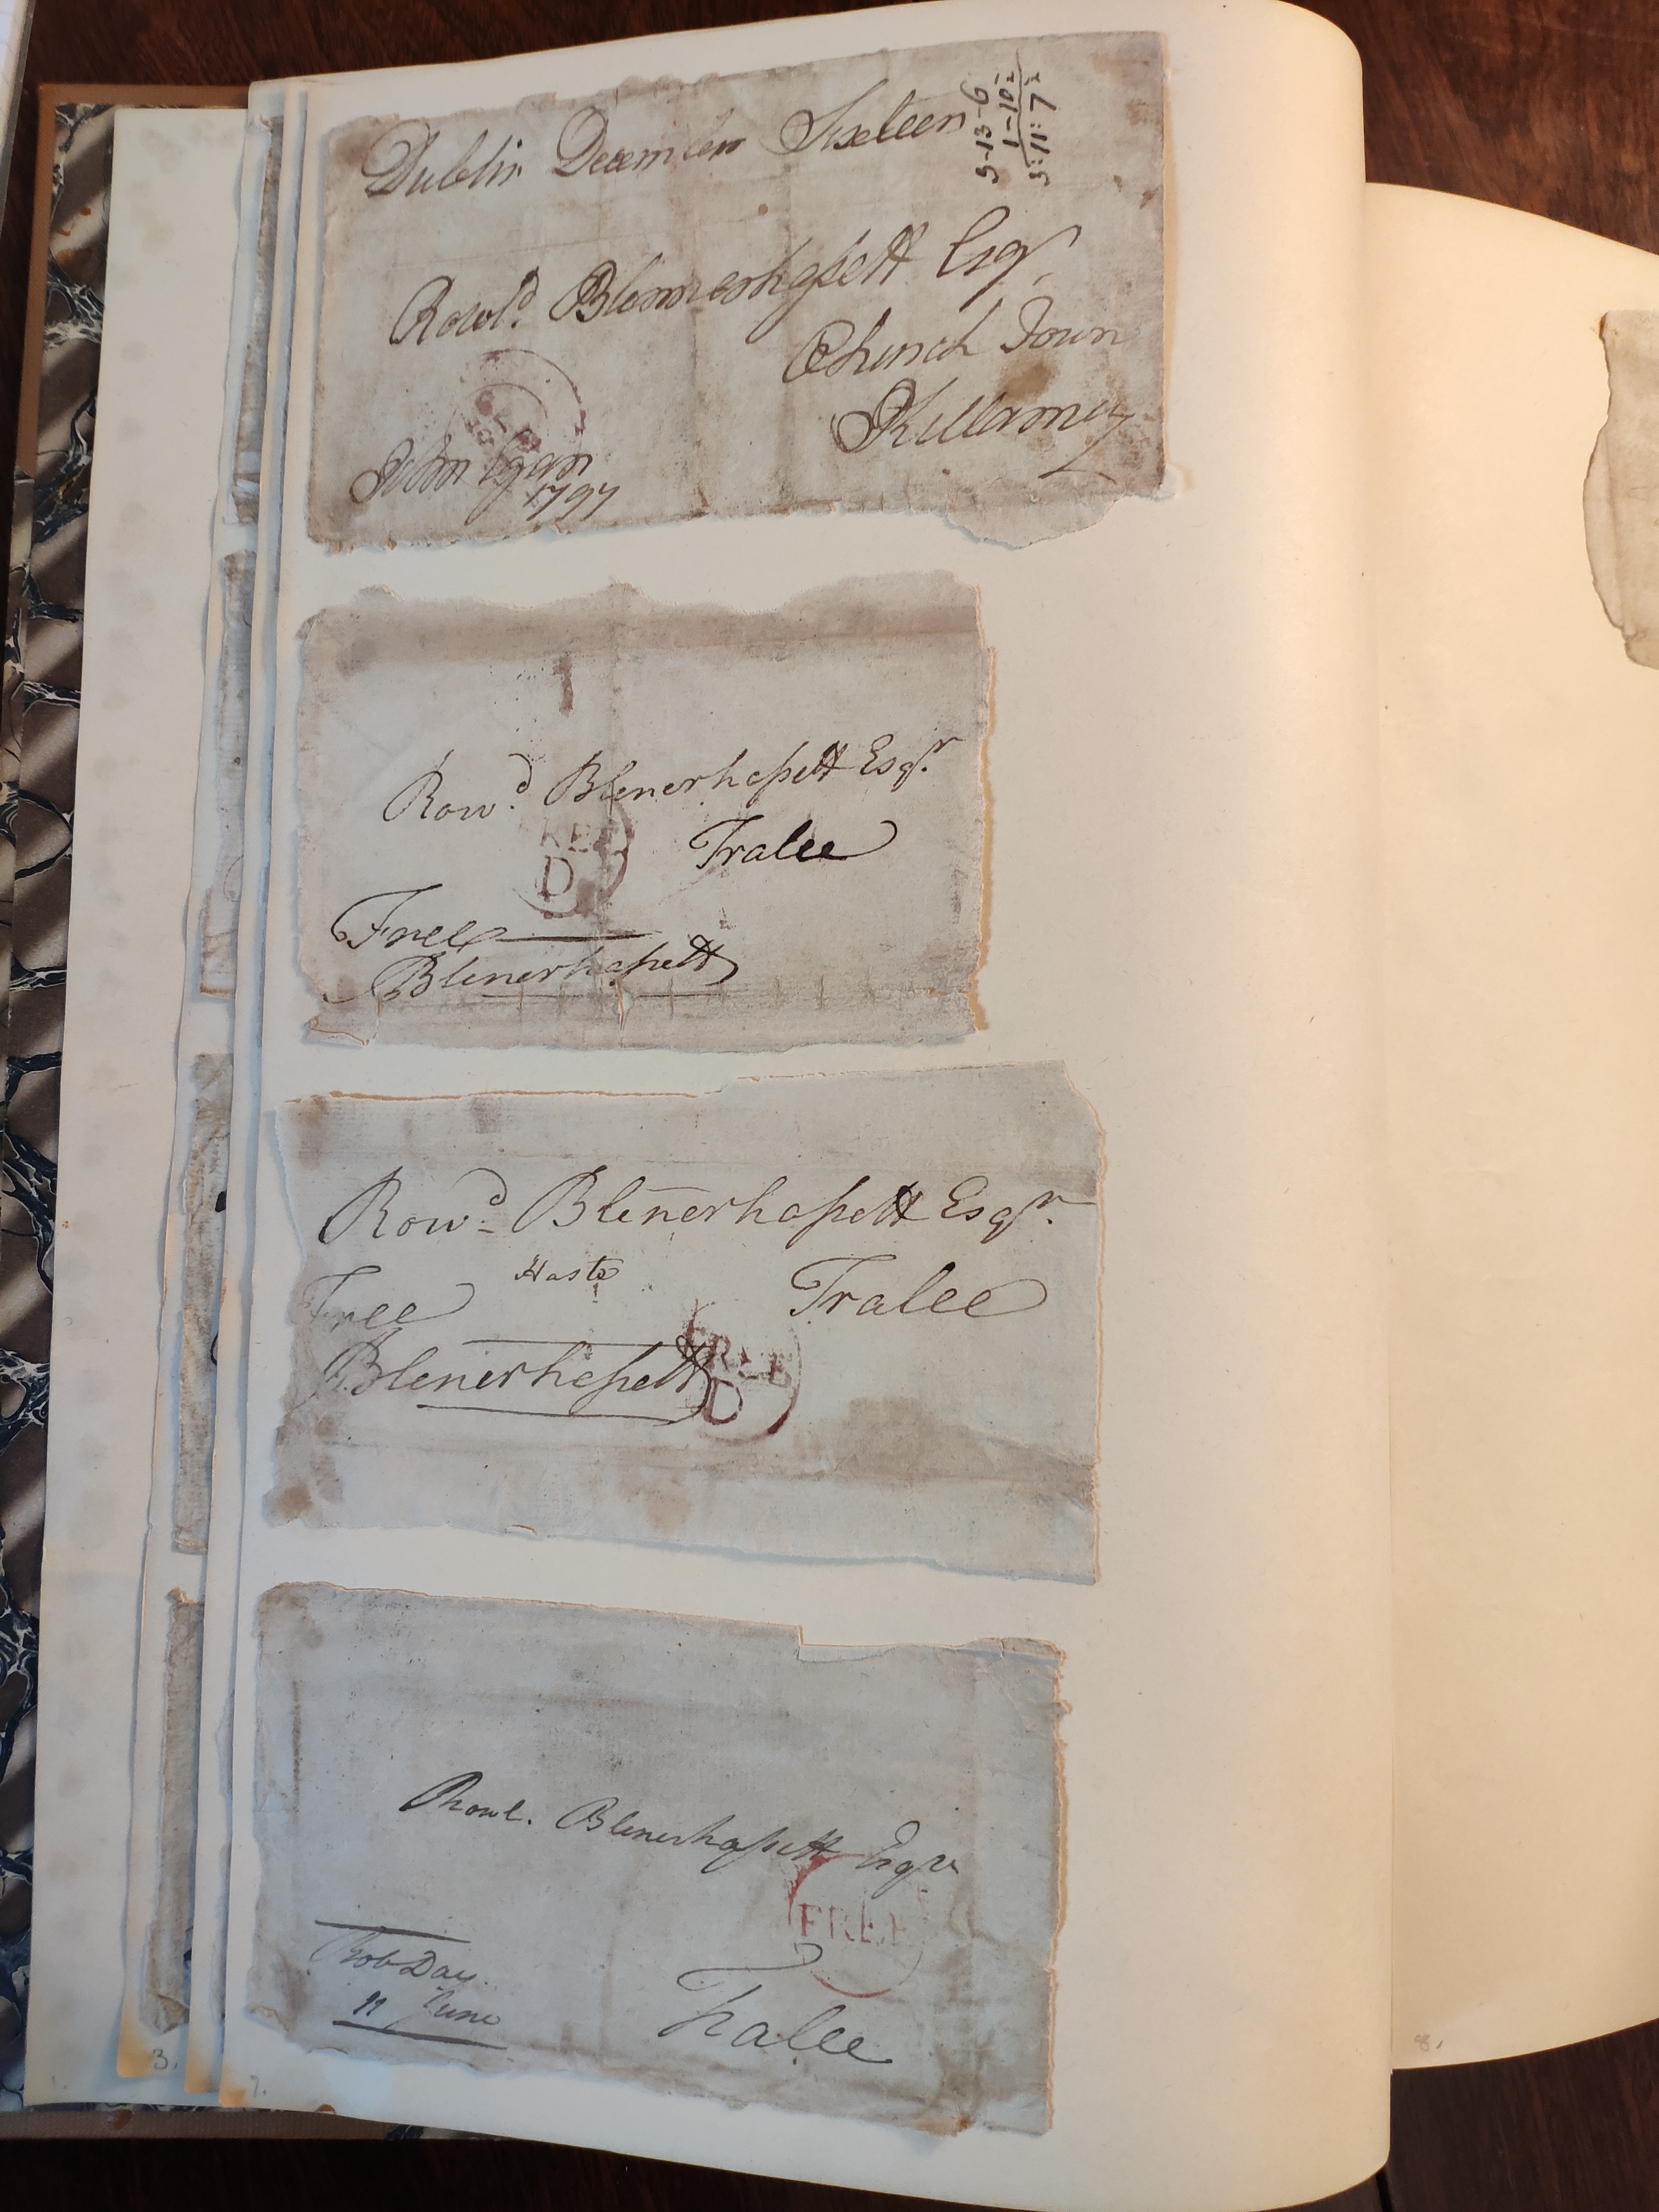 Dublin December Sixteen
5-13-6
1-10½
5:11:7½
Rowld. Blennerhassett Esqr.
Church Town
Killarney
John Egan
1797
Rowd. Blenerhassett Esqr.
FREE
D
Tralee
Free
Blenerhassett
Rowd. Blenerhassett Esqr.
Haste
Free
Tralee
Blenerhassett
FREE
D
Rowl. Blenerhassett Esqr
FREE
Rob Day
11 June
Tralee
3.
7.
8.